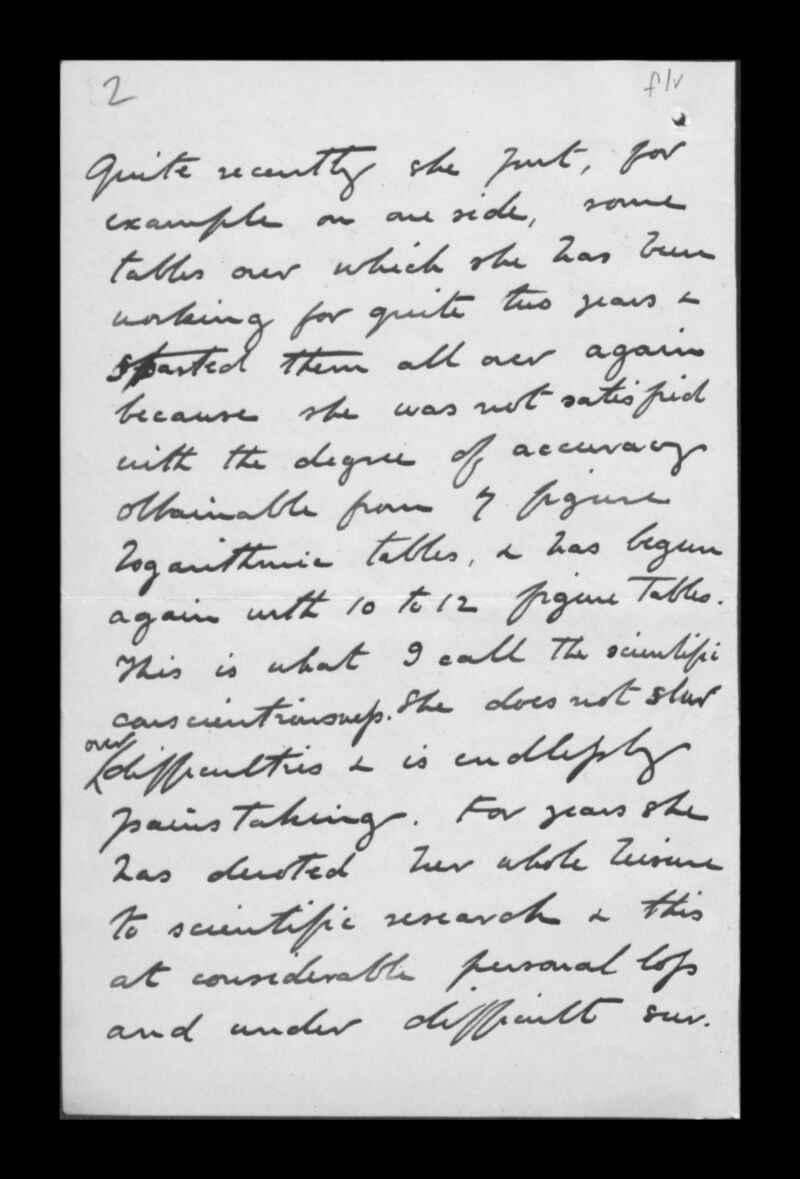 2
f/v
Quite recently she put, for
example on one side, some
tables over which she has been
working for quite two years &
started them all over again
because she was not satisfied
with the degree of accuracy
obtainable from 7 figure
logarithmic tables, & has begun
again with 10 to 12 figure Tables.
This is what I call the scientific
conscientiousness. She does not slur
over
difficulties & is endlessly
painstaking. For years she
has devoted her whole leisure
to scientific research & this
at considerable personal loss
and under difficult sur.